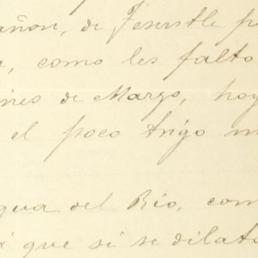 añon, de Tenestle p
, como les falto
ines de Marzo, hoy
el poco trigo m
gua del Rio, com
i que si se dilato